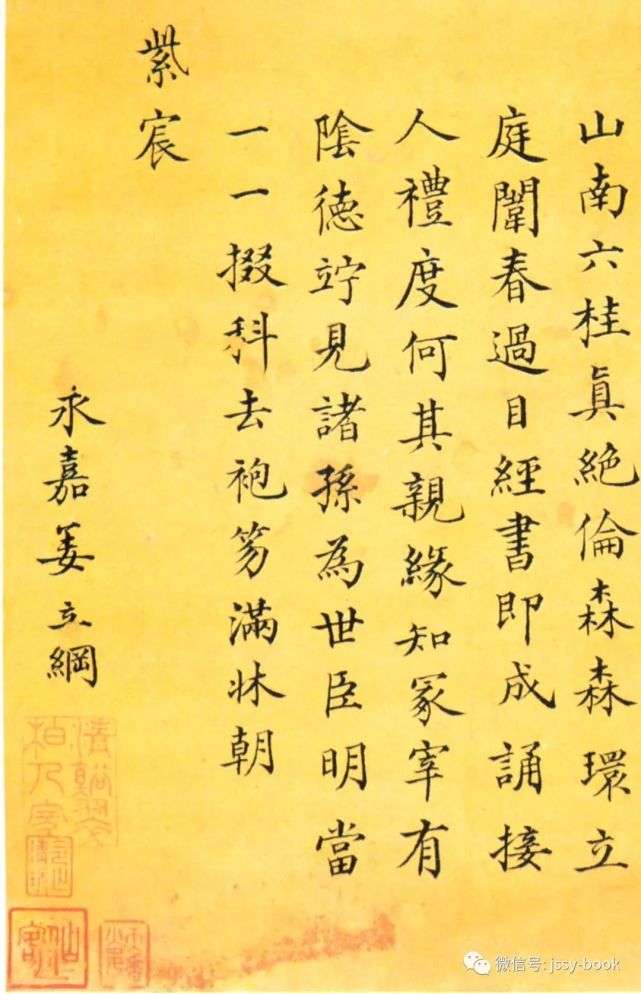 山南六桂眞絶倫森森環立
庭闈春過目經書即成誦接
人禮度何其親緣知冢宰有
陰德竚見諸孫為世臣明當
一一掇科去袍笏滿牀朝
紫宸
永嘉姜立綱
微信号:jssy-book